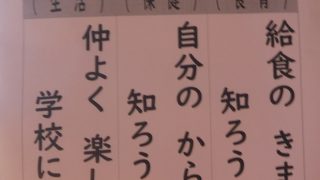 (食育)
給食の きま
知ろう
(保健)
自分の から
知ろう
(生活)
仲よく 楽し
学校に